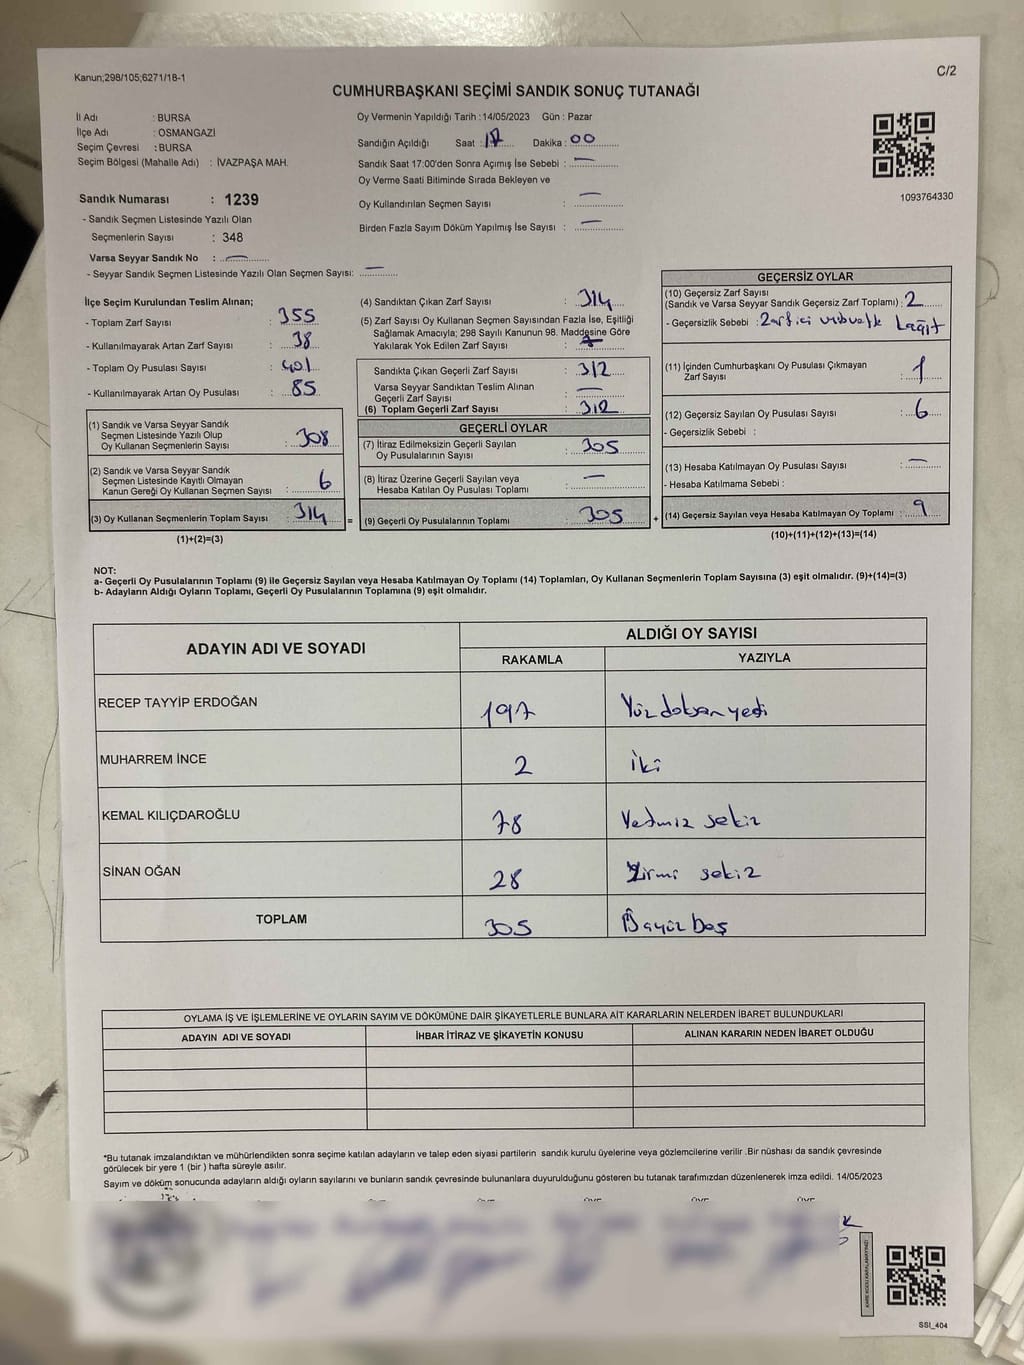 Kanun;298/105;6271/18-1
C/2
CUMHURBAŞKANI SEÇİMİ SANDIK SONUÇ TUTANAĞI
İl Adı : BURSA
İlçe Adı : OSMANGAZİ
Seçim Çevresi : BURSA
Seçim Bölgesi (Mahalle Adı) : İVAZPAŞA MAH.
Oy Vermenin Yapıldığı Tarih :14/05/2023 Gün : Pazar
Sandığın Açıldığı Saat : 17 Dakika : 00
Sandık Saat 17:00'den Sonra Açımış İse Sebebi : —
Oy Verme Saati Bitiminde Sırada Bekleyen ve
Oy Kullandırılan Seçmen Sayısı : —
Birden Fazla Sayım Döküm Yapılmış İse Sayısı : —
1093764330
Sandık Numarası : 1239
- Sandık Seçmen Listesinde Yazılı Olan
Seçmenlerin Sayısı : 348
Varsa Seyyar Sandık No : —
- Seyyar Sandık Seçmen Listesinde Yazılı Olan Seçmen Sayısı: —
İlçe Seçim Kurulundan Teslim Alınan;
- Toplam Zarf Sayısı : 355
- Kullanılmayarak Artan Zarf Sayısı : 38
- Toplam Oy Pusulası Sayısı : 401
- Kullanılmayarak Artan Oy Pusulası : 85
(1) Sandık ve Varsa Seyyar Sandık
Seçmen Listesinde Yazılı Olup
Oy Kullanan Seçmenlerin Sayısı : 308
(2) Sandık ve Varsa Seyyar Sandık
Seçmen Listesinde Kayıtlı Olmayan
Kanun Gereği Oy Kullanan Seçmen Sayısı : 6
(3) Oy Kullanan Seçmenlerin Toplam Sayısı : 314 =
(1)+(2)=(3)
(4) Sandıktan Çıkan Zarf Sayısı : 314
(5) Zarf Sayısı Oy Kullanan Seçmen Sayısından Fazla İse, Eşitliği
Sağlamak Amacıyla; 298 Sayılı Kanunun 98. Maddesine Göre
Yakılarak Yok Edilen Zarf Sayısı :
Sandıkta Çıkan Geçerli Zarf Sayısı : 312
Varsa Seyyar Sandıktan Teslim Alınan
Geçerli Zarf Sayısı : —
(6) Toplam Geçerli Zarf Sayısı : 312
GEÇERLİ OYLAR
(7) İtiraz Edilmeksizin Geçerli Sayılan
Oy Pusulalarının Sayısı : 305
(8) İtiraz Üzerine Geçerli Sayılan veya
Hesaba Katılan Oy Pusulası Toplamı : —
(9) Geçerli Oy Pusulalarının Toplamı : 305 +
GEÇERSİZ OYLAR
(10) Geçersiz Zarf Sayısı
(Sandık ve Varsa Seyyar Sandık Geçersiz Zarf Toplamı) : 2
- Geçersizlik Sebebi :
(11) İçinden Cumhurbaşkanı Oy Pusulası Çıkmayan
Zarf Sayısı : 1
(12) Geçersiz Sayılan Oy Pusulası Sayısı : 6
- Geçersizlik Sebebi :
(13) Hesaba Katılmayan Oy Pusulası Sayısı : —
- Hesaba Katılmama Sebebi :
(14) Geçersiz Sayılan veya Hesaba Katılmayan Oy Toplamı : 9
(10)+(11)+(12)+(13)=(14)
NOT:
a- Geçerli Oy Pusulalarının Toplamı (9) ile Geçersiz Sayılan veya Hesaba Katılmayan Oy Toplamı (14) Toplamları, Oy Kullanan Seçmenlerin Toplam Sayısına (3) eşit olmalıdır. (9)+(14)=(3)
b- Adayların Aldığı Oyların Toplamı, Geçerli Oy Pusulalarının Toplamına (9) eşit olmalıdır.
ADAYIN ADI VE SOYADI ALDIĞI OY SAYISI
RAKAMLA YAZIYLA
RECEP TAYYİP ERDOĞAN 197 Yüz doksan yedi
MUHARREM İNCE 2 İki
KEMAL KILIÇDAROĞLU 78 Yetmiz sekiz
SİNAN OĞAN 28 Yirmi sekiz
TOPLAM 305
OYLAMA İŞ VE İŞLEMLERİNE VE OYLARIN SAYIM VE DÖKÜMÜNE DAİR ŞİKAYETLERLE BUNLARA AİT KARARLARIN NELERDEN İBARET BULUNDUKLARI
ADAYIN ADI VE SOYADI İHBAR İTİRAZ VE ŞİKAYETİN KONUSU ALINAN KARARIN NEDEN İBARET OLDUĞU
*Bu tutanak imzalandıktan ve mühürlendikten sonra seçime katılan adayların ve talep eden siyasi partilerin sandık kurulu üyelerine veya gözlemcilerine verilir .Bir nüshası da sandık çevresinde
görülecek bir yere 1 (bir ) hafta süreyle asılır.
Sayım ve döküm sonucunda adayların aldığı oyların sayılarını ve bunların sandık çevresinde bulunanlara duyurulduğunu gösteren bu tutanak tarafımızdan düzenlenerek imza edildi. 14/05/2023
SSI_404